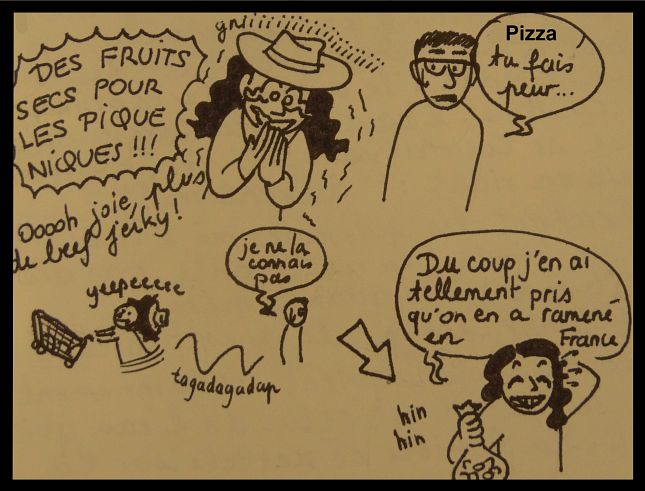 DES FRUITS
SECS POUR
LES PIQUE
NIQUES !!!
gniiiiiiiiiiiiiiii
Pizza
tu fais
peur...
Ooooh joie, plus
de beef jerky!
yeepeeeee
je ne la
connais
pas
tagadagadap
Du coup j'en ai
tellement pris
qu'on en a ramené
en France
hin
hin